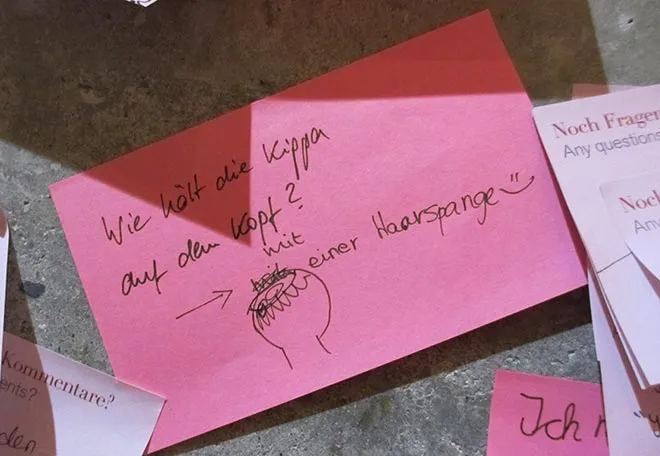 Wie hält die Kippa
auf dem Kopf?
mit
einer Haarspange
Noch Fragen
Any questions
Noch
An
Kommentare?
ents?
den
Ich